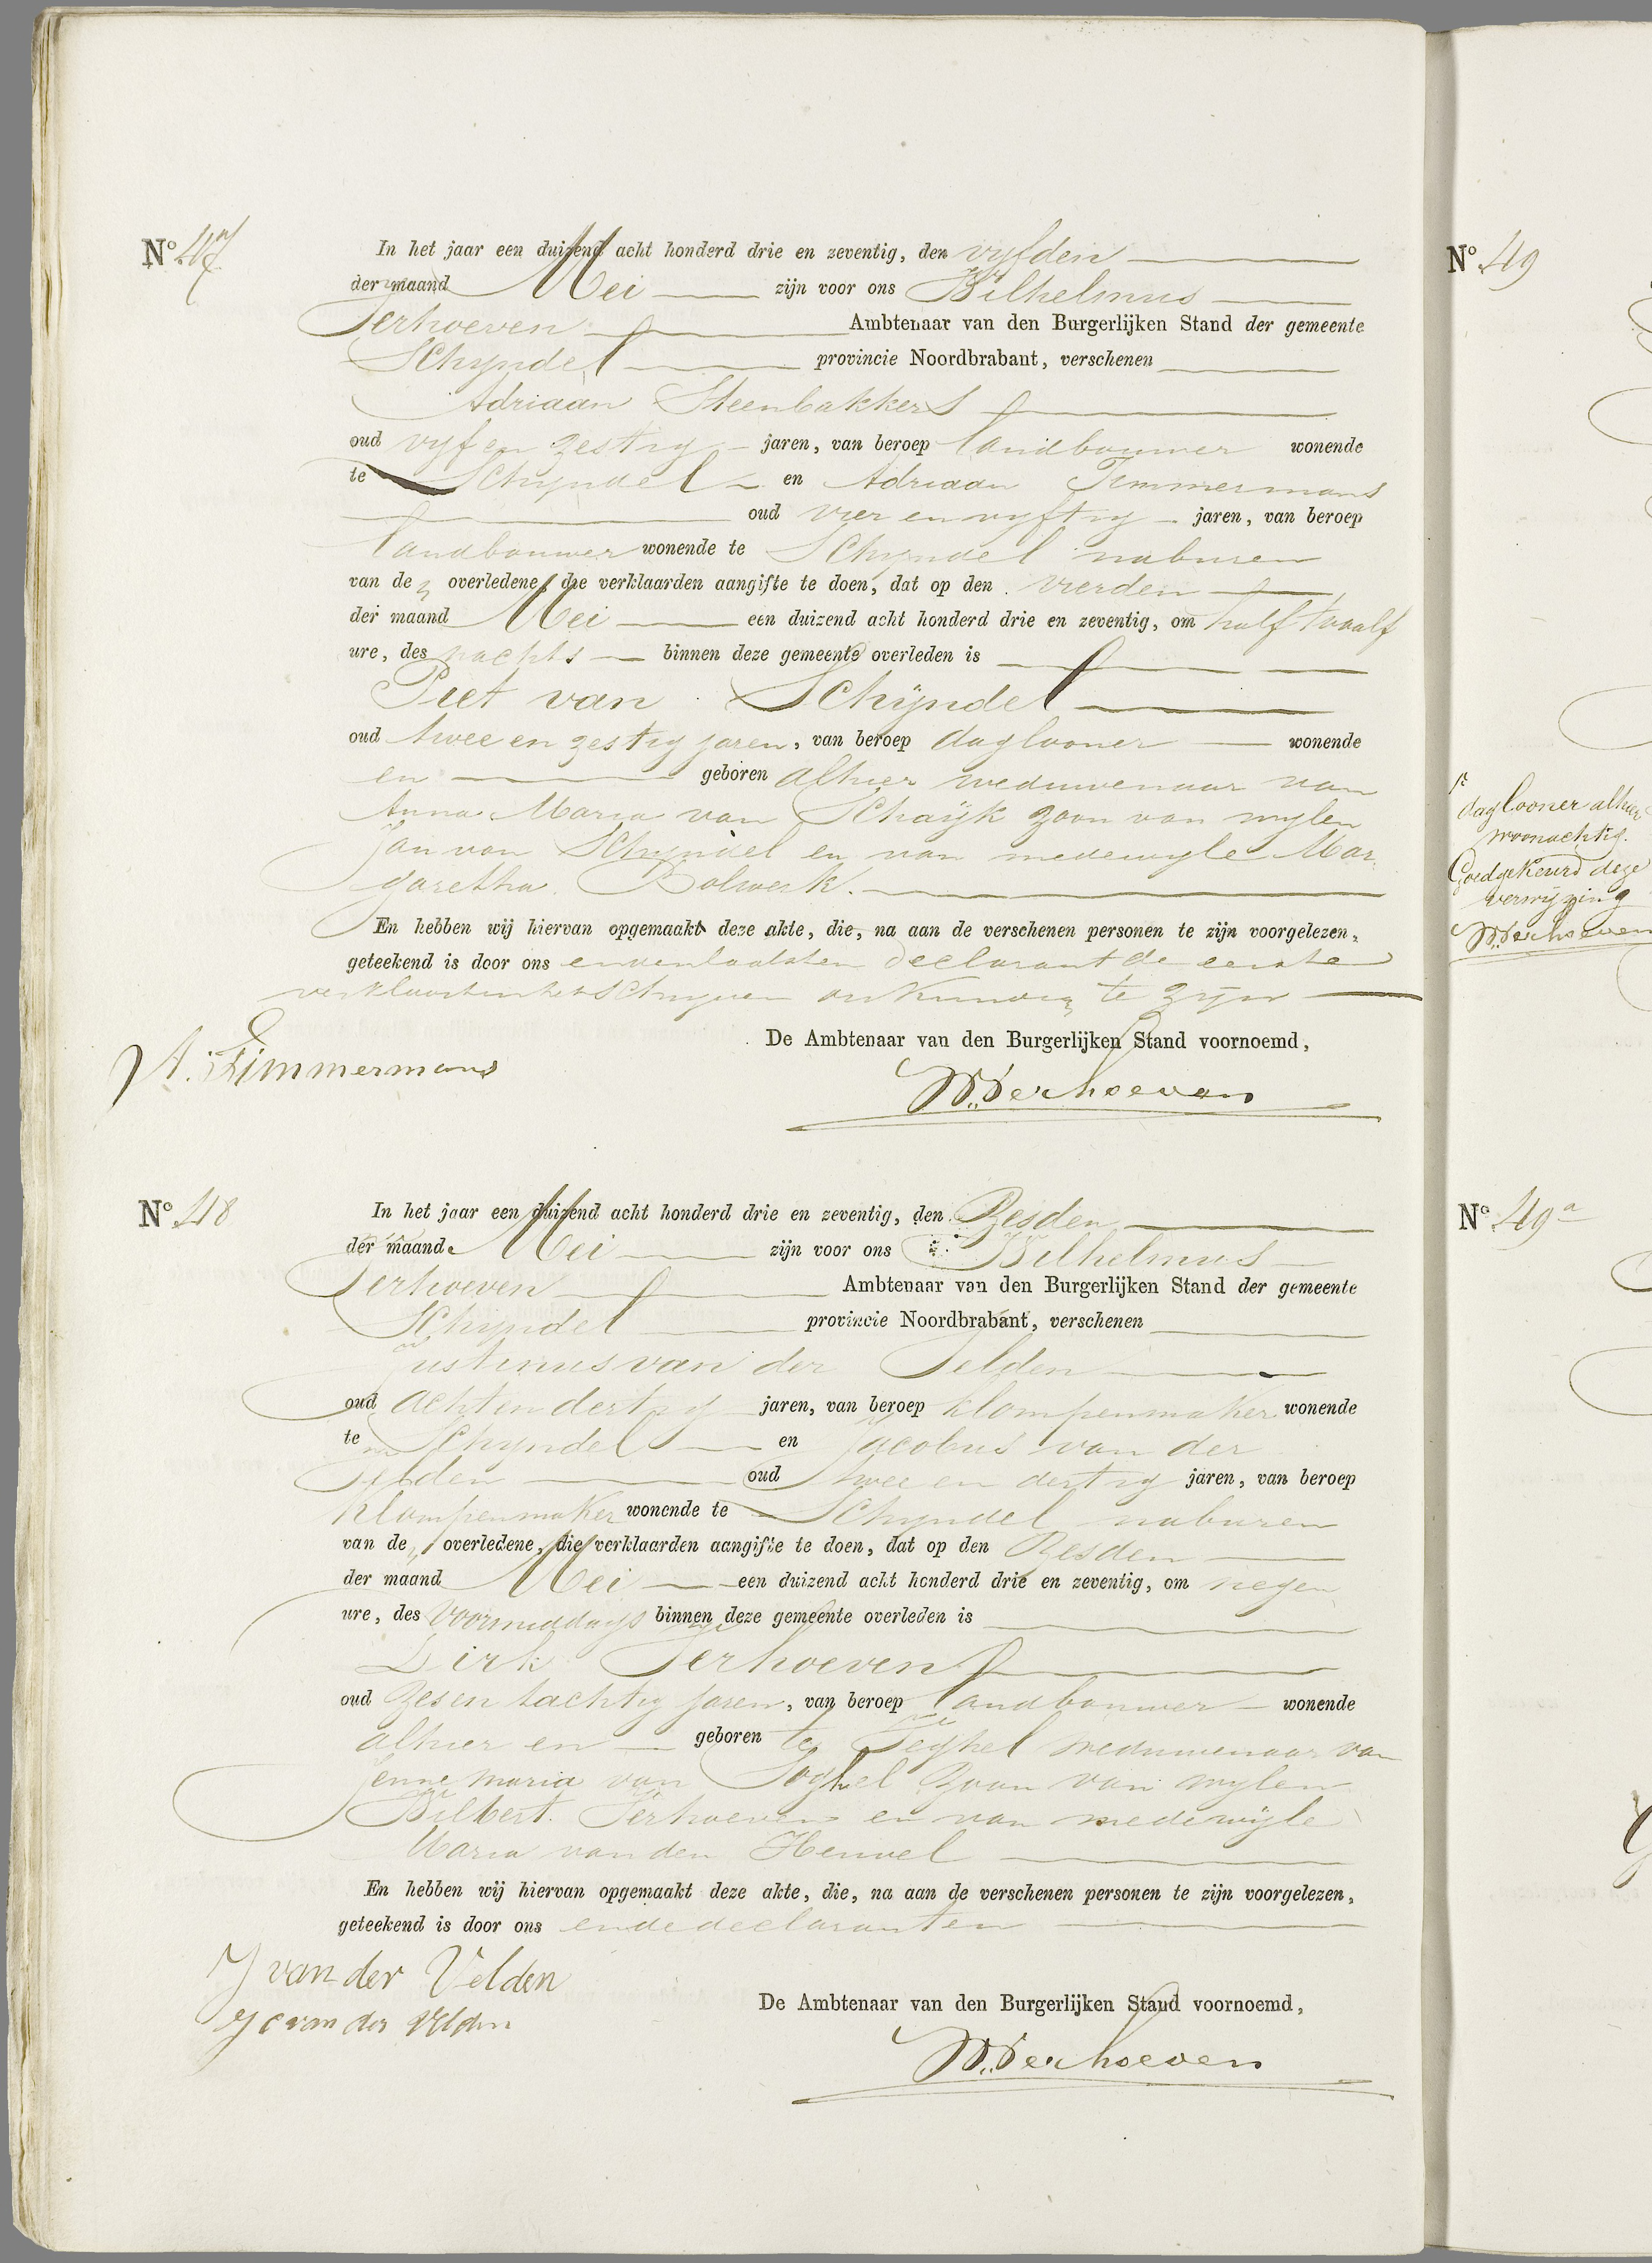 No. 47
In het jaar een duizend acht honderd drie en zeventig, den vyfden
der maand Mei zijn voor ons Wilhelmus
Verhoeven Ambtenaar van den Burgerlijken Stand der gemeente
Schyndel provincie Noordbrabant, verschenen
Adriaan Steenbakkers
oud vyf en zestig jaren, van beroep landbouwer wonende
te Schyndel en Adriaan Timmermans
oud vier en vyftig jaren, van beroep
landbouwer wonende te Schyndel naburen
van de overledene, die verklaarden aangifte te doen, dat op den vierden
der maand Mei een duizend acht honderd drie en zeventig, om half twaalf
ure, des nachts binnen deze gemeente overleden is
Piet van Schÿndel
oud twee en zestig jaren, van beroep daglooner wonende
en geboren alhier weduwenaar van
Anna Maria van Schaÿk zoon van wylen
Jan van Schyndel en van medewyle Mar
garetha Bolwerk.
En hebben wij hiervan opgemaakt deze akte, die, na aan de verschenen personen te zijn voorgelezen,
geteekend is door ons en den laatsten declarant de eerste
verklaarde het schryven onkundig te zyn
De Ambtenaar van den Burgerlijken Stand voornoemd,
A. Timmermans
W. Verhoeven
No. 48
In het jaar een duizend acht honderd drie en zeventig, den Zesden
der maand Mei zijn voor ons Wilhelmus
Verhoeven Ambtenaar van den Burgerlijken Stand der gemeente
Schijndel provincie Noordbrabant, verschenen
Justinus van der Velden
oud acht en dertig jaren, van beroep klompenmaker wonende
te Schyndel en Jacobus van der
Velden oud twee en dertig jaren, van beroep
klompenmaker wonende te Schyndel naburen
van de overledene, die verklaarden aangifte te doen, dat op den Zesden
der maand Mei een duizend acht honderd drie en zeventig, om negen
ure, des voormiddags binnen deze gemeente overleden is
Dirk Verhoeven
oud zes en tachtig jaren, van beroep landbouwer wonende
alhier en geboren te Veghel weduwenaar van
Jenne Maria van Soghel zoon van wylen
Wilbert Verhoeven en van medewijle
Maria van den Heuvel
En hebben wij hiervan opgemaakt deze akte, die, na aan de verschenen personen te zijn voorgelezen,
geteekend is door ons en de declaranten
J van der Velden
J C van der Velden
De Ambtenaar van den Burgerlijken Stand voornoemd,
W. Verhoeven
No. 49
daglooner alhier
woonachtig.
Goedgekeurd deze
verwyzing
W. Verhoeven
No. 49a